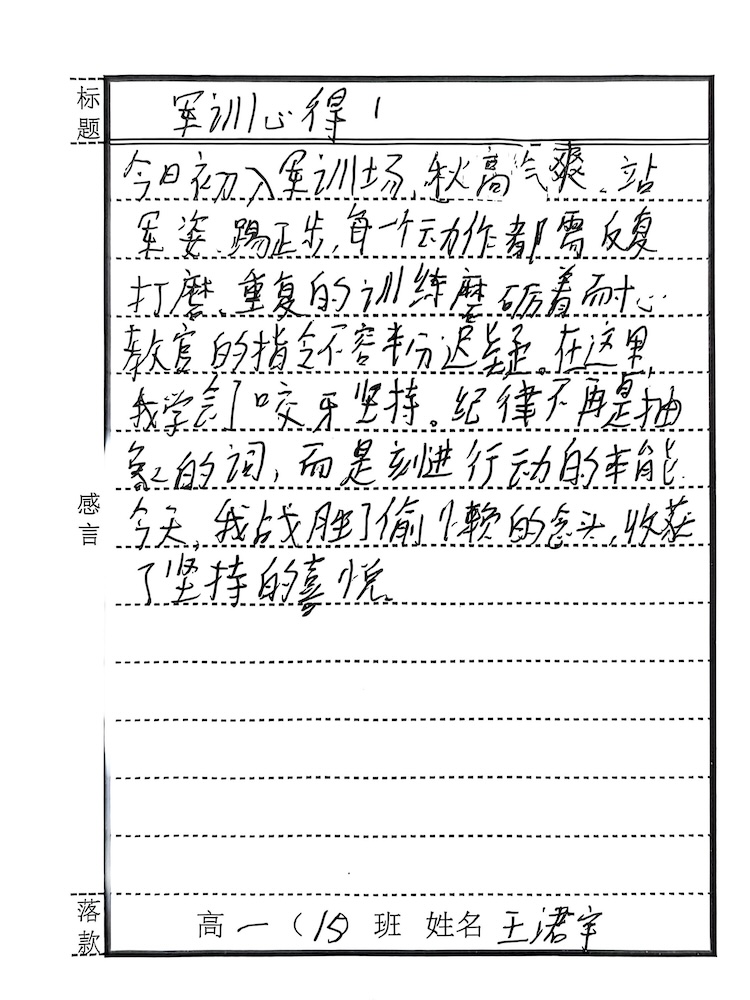 标题
军训心得1
今日初入军训场,秋高气爽.站
军姿.踢正步,每一个动作都需反复
打磨.重复的训练磨砺着耐心.
教官的指令不容半分迟疑。在这里,
我学会了咬牙坚持。纪律不再是抽
象的词,而是刻进行动的本能.
今天,我战胜了偷懒的念头,收获
了坚持的喜悦.
感言
落款
高一(15)班 姓名 王珺宇